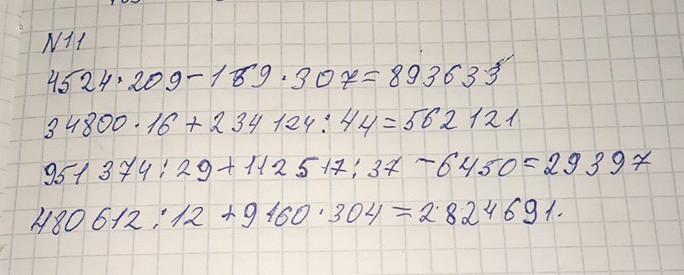 N11
4524·209-169·307=893633
34800·16+234124:44=562121
951374:29+112517:37-6450=29397
480612:12+9160·304=2824691.